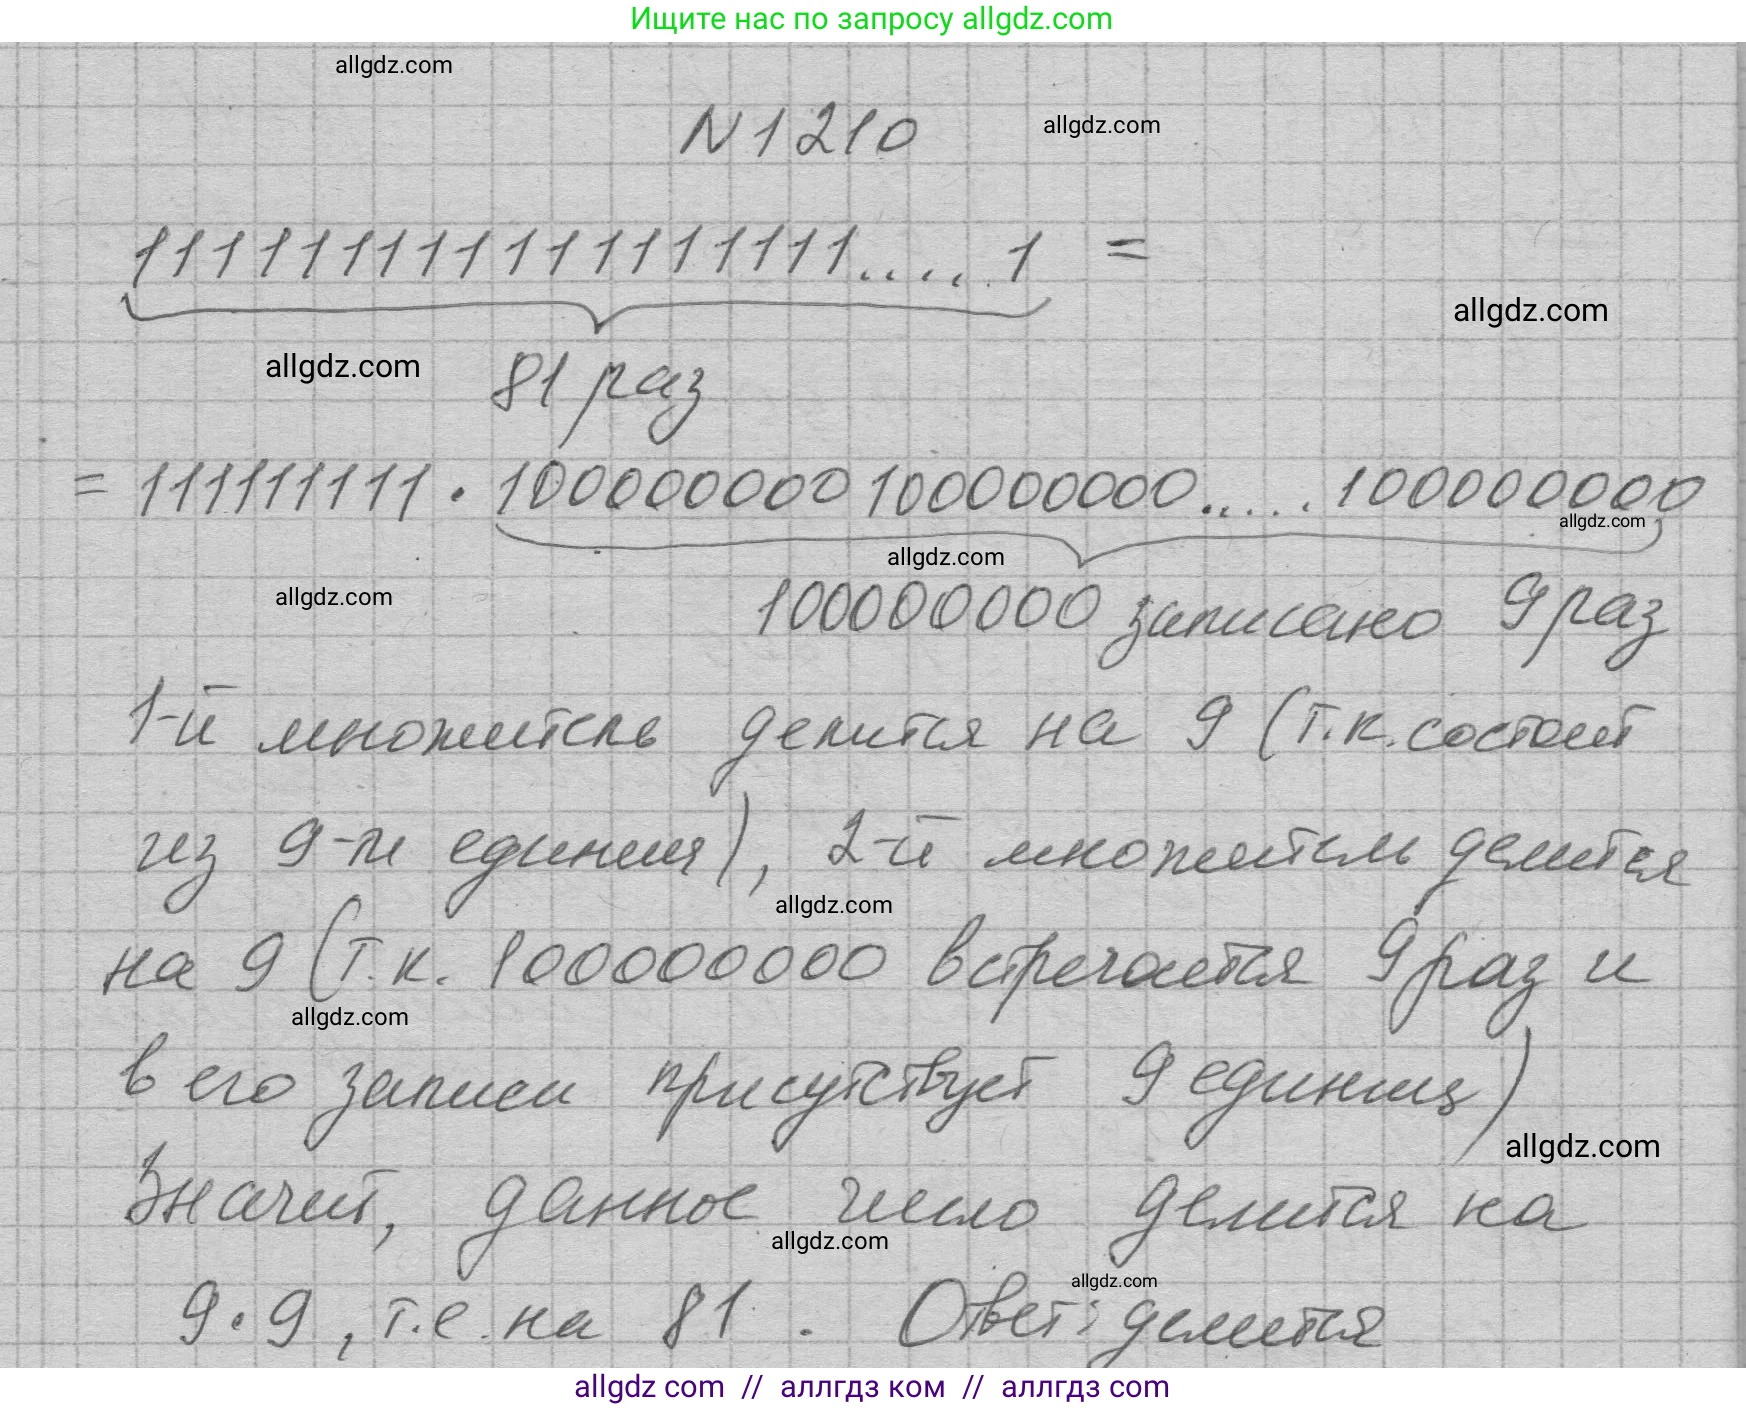 Ищите нас по запросу allgdz.com
allgdz.com
N 1210
allgdz.com
1111111111111111111.....1 =
allgdz.com
allgdz.com
81 раз
= 111111111 · 100000000 100000000..... 100000000
allgdz.com
allgdz.com
allgdz.com
100000000 записано 9 раз
1-й множитель делится на 9 (т.к. состоит
из 9-ти единиц), 2-й множитель делится
allgdz.com
на 9 (т.к. 100000000 встречается 9 раз и
allgdz.com
в его записи присутствует 9 единиц)
allgdz.com
Значит, данное число делится на
allgdz.com
allgdz.com
9·9, т.е. на 81. Ответ: делится
allgdz com // аллгдз ком // аллгдз com